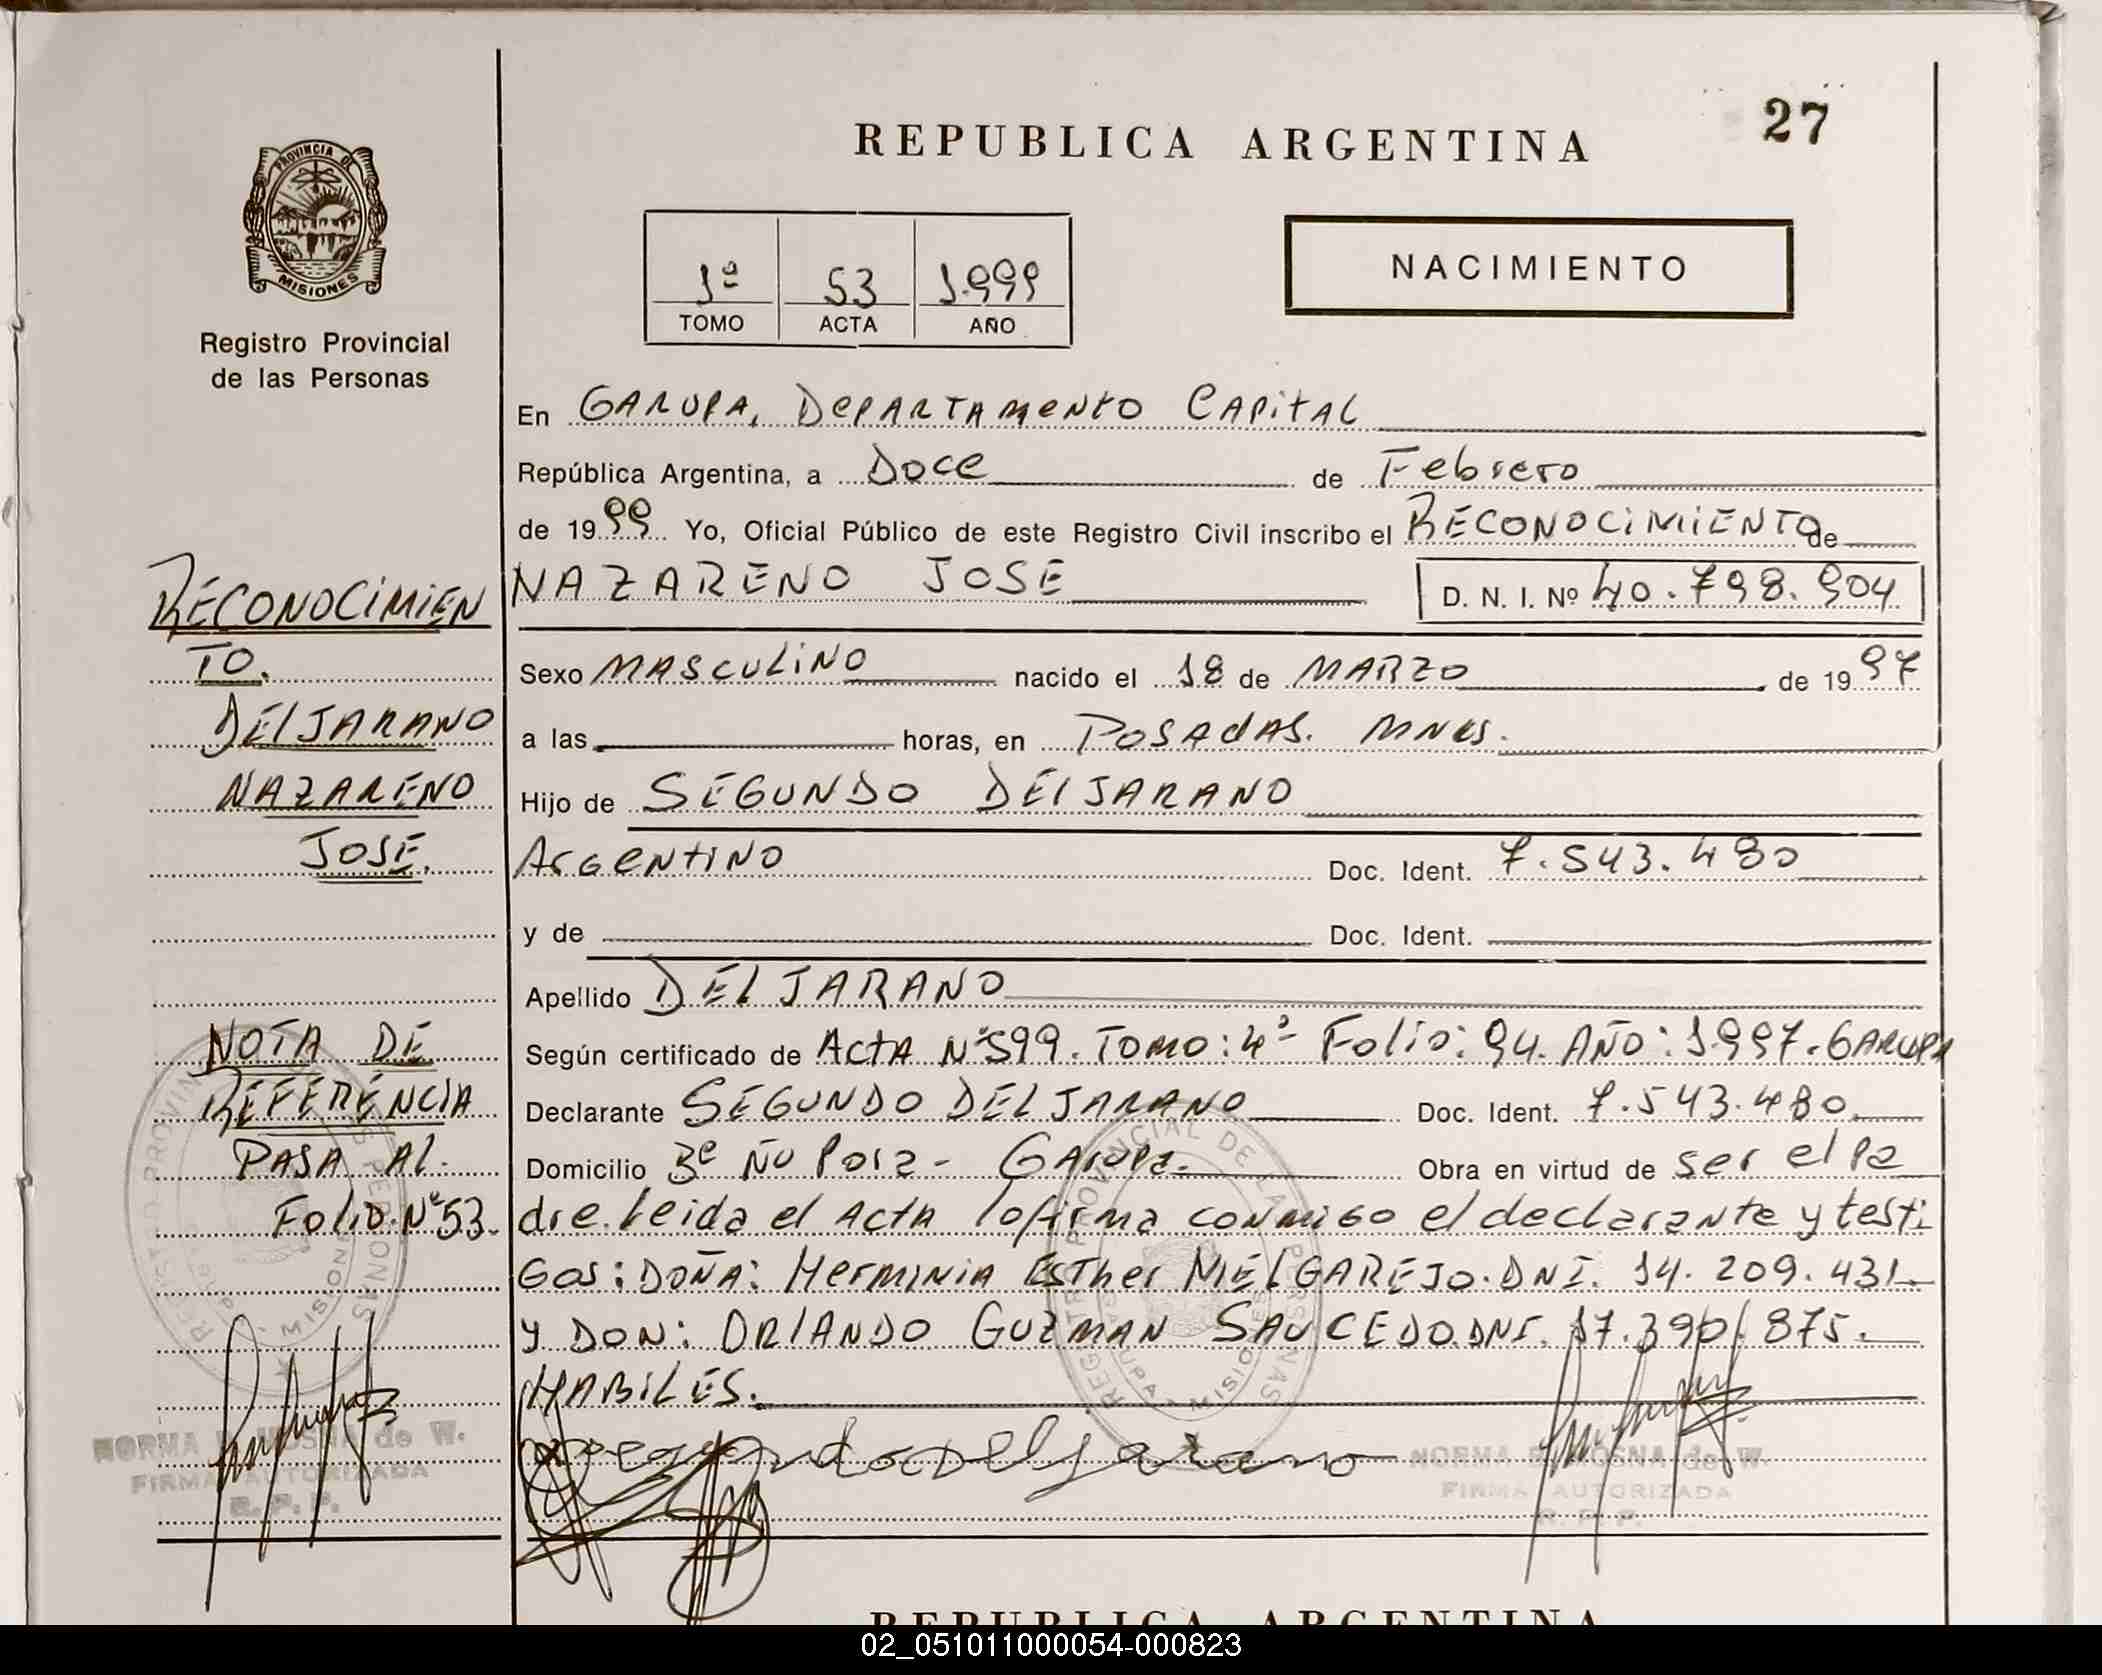 27
REPUBLICA ARGENTINA
PROVINCIA DE
MISIONES
Registro Provincial
de las Personas
NACIMIENTO
1º 53 1.999
TOMO ACTA AÑO
En GARUPA, DEPARTAMENTO CAPITAL
República Argentina, a DOCE de Febrero
de 1999 Yo, Oficial Público de este Registro Civil inscribo el RECONOCIMIENTO de
NAZARENO JOSE D. N. I. Nº 40.798.904
Sexo MASCULINO nacido el 18 de MARZO de 1997
a las horas, en POSADAS. MNES.
Hijo de SEGUNDO DELJARANO
ARGENTINO Doc. Ident. 7.543.480
y de Doc. Ident.
Apellido DELJARANO
Según certificado de ACTA Nº 599. TOMO: 4º Folio: 94. AÑO: 1.997. GARUPA
Declarante SEGUNDO DELJARANO Doc. Ident. 7.543.480
Domicilio Ñu Pora - Garupa. Obra en virtud de ser el pa
dre. Leida el ACTA lo firma conmigo el declarante y testi
GOS: DOÑA: HERMINIA ESTHER MELGAREJO. DNI. 14.209.431
y DON: ORLANDO GUZMAN SAUCEDO. DNI. 17.390.875.
HABILES.
Segundo Deljarano
NORMA B. MOSNA de W.
FIRMA AUTORIZADA
R. P. P.
RECONOCIMIEN
TO.
DELJARANO
NAZARENO
JOSE.
NOTA DE
REFERENCIA
PASA AL
FOLIO Nº 53.
REGISTRO PROVINCIAL DE LAS PERSONAS
GARUPA - MISIONES
NORMA B. MOSNA de W.
FIRMA AUTORIZADA
R. P. P.
REGISTRO PROVINCIAL DE LAS PERSONAS
GARUPA - MISIONES
REPUBLICA ARGENTINA
02_051011000054-000823